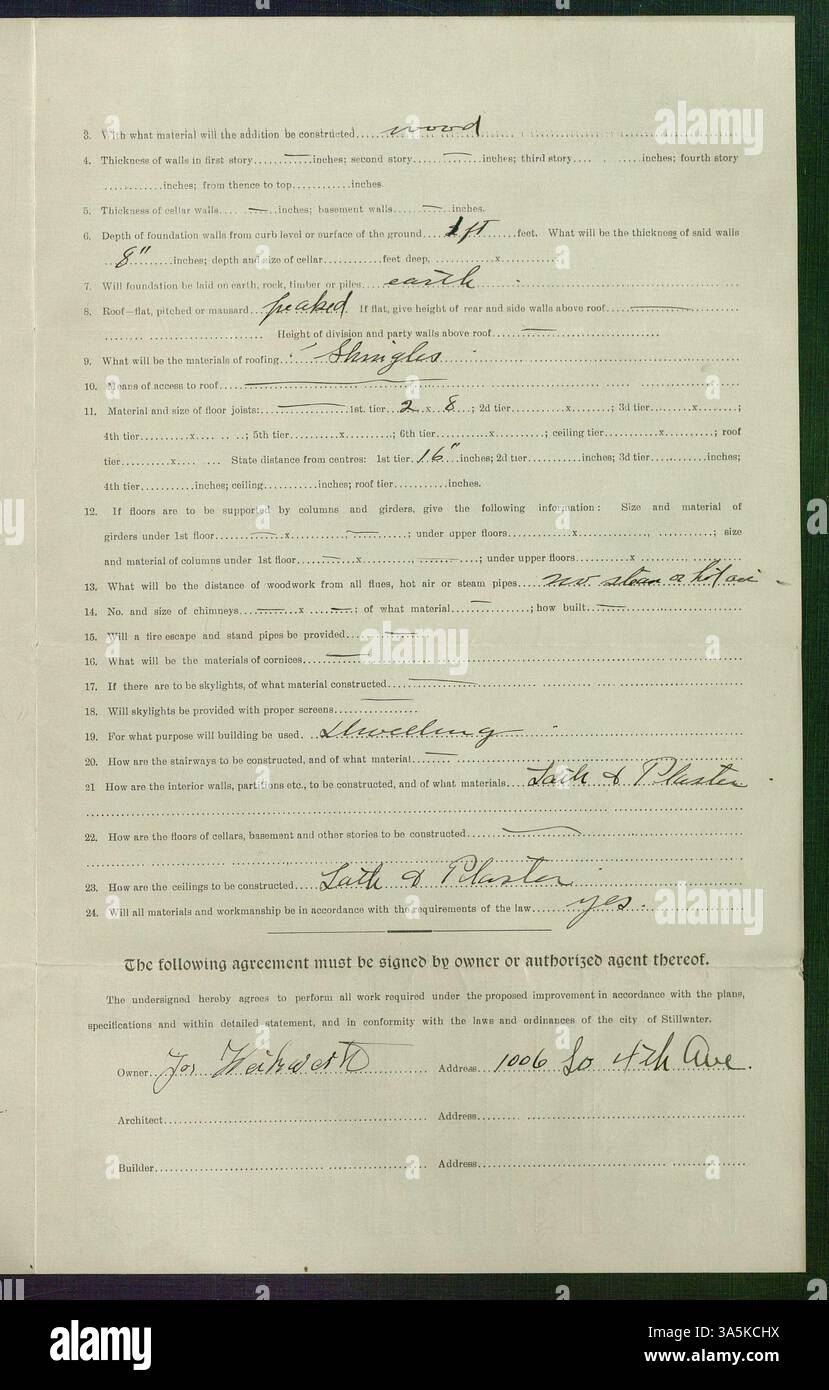 3. With what material will the addition be constructed.....wood
4. Thickness of walls in first story............inches; second story............inches; third story............inches; fourth story
............inches; from thence to top............inches
5. Thickness of cellar walls............inches; basement walls............inches.
6. Depth of foundation walls from curb level or surface of the ground.....1 ft.....feet. What will be the thickness of said walls
..8"......inches; depth and size of cellar............feet deep, ............x............
7. Will foundation be laid on earth, rock, timber or piles.....earth
8. Roof—flat, pitched or mansard...peaked. If flat, give height of rear and side walls above roof............
Height of division and party walls above roof............
9. What will be the materials of roofing.....Shingles
10. Means of access to roof............
11. Material and size of floor joists:............1st. tier...2..x..8...; 2d tier............x........; 3d tier........x........;
4th tier..........x..........; 5th tier..........x..........; 6th tier..........x..........; ceiling tier..........x..........; roof
tier..........x.......... State distance from centres: 1st tier..16"..inches; 2d tier............inches; 3d tier........inches;
4th tier............inches; ceiling............inches; roof tier............inches.
12. If floors are to be supported by columns and girders, give the following information: Size and material of
girders under 1st floor............x............,............; under upper floors............x............, ............; size
and material of columns under 1st floor........x........, ............; under upper floors............x............
13. What will be the distance of woodwork from all flues, hot air or steam pipes.....no steam or hot air
14. No. and size of chimneys............x ............; of what material............; how built............
15. Will a fire escape and stand pipes be provided............
16. What will be the materials of cornices............
17. If there are to be skylights, of what material constructed............
18. Will skylights be provided with proper screens............
19. For what purpose will building be used. ..Dwelling
20. How are the stairways to be constructed, and of what material............
21 How are the interior walls, partitions etc., to be constructed, and of what materials....Lath & Plaster
22. How are the floors of cellars, basement and other stories to be constructed............
23. How are the ceilings to be constructed.....Lath & Plaster
24. Will all materials and workmanship be in accordance with the requirements of the law.....yes.
The following agreement must be signed by owner or authorized agent thereof.
The undersigned hereby agrees to perform all work required under the proposed improvement in accordance with the plans,
specifications and within detailed statement, and in conformity with the laws and ordinances of the city of Stillwater.
Owner..Jos Address..1006 So 4th Ave.
Architect............ Address............
Builder............ Address............
alamy
a
alamy
Image ID: 3A5KCHX
www.alamy.com